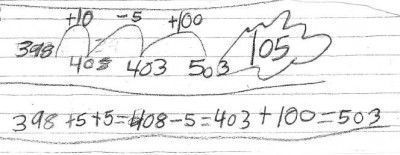 +10 -5 +100
398 408 403 503 105
398+5+5=408-5=403+100=503